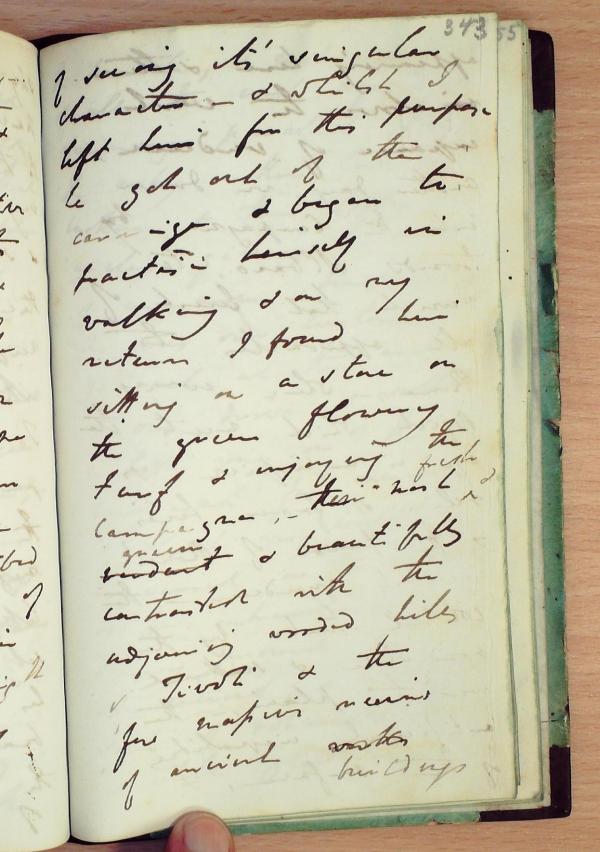 343 55
of seeing it's singular
character – & whilst I
left him for this purpose
he got out of the
carriage & began to
practise himself in
walking & on my
return I found him
sitting on a stone on
the green flowery
turf & enjoying the
fresh &
Campagna, – then most
green
verdant & beautifully
contrasted with the
adjoining wooded hills
Tivoli & the
few massive ruins
of ancient works
buildings